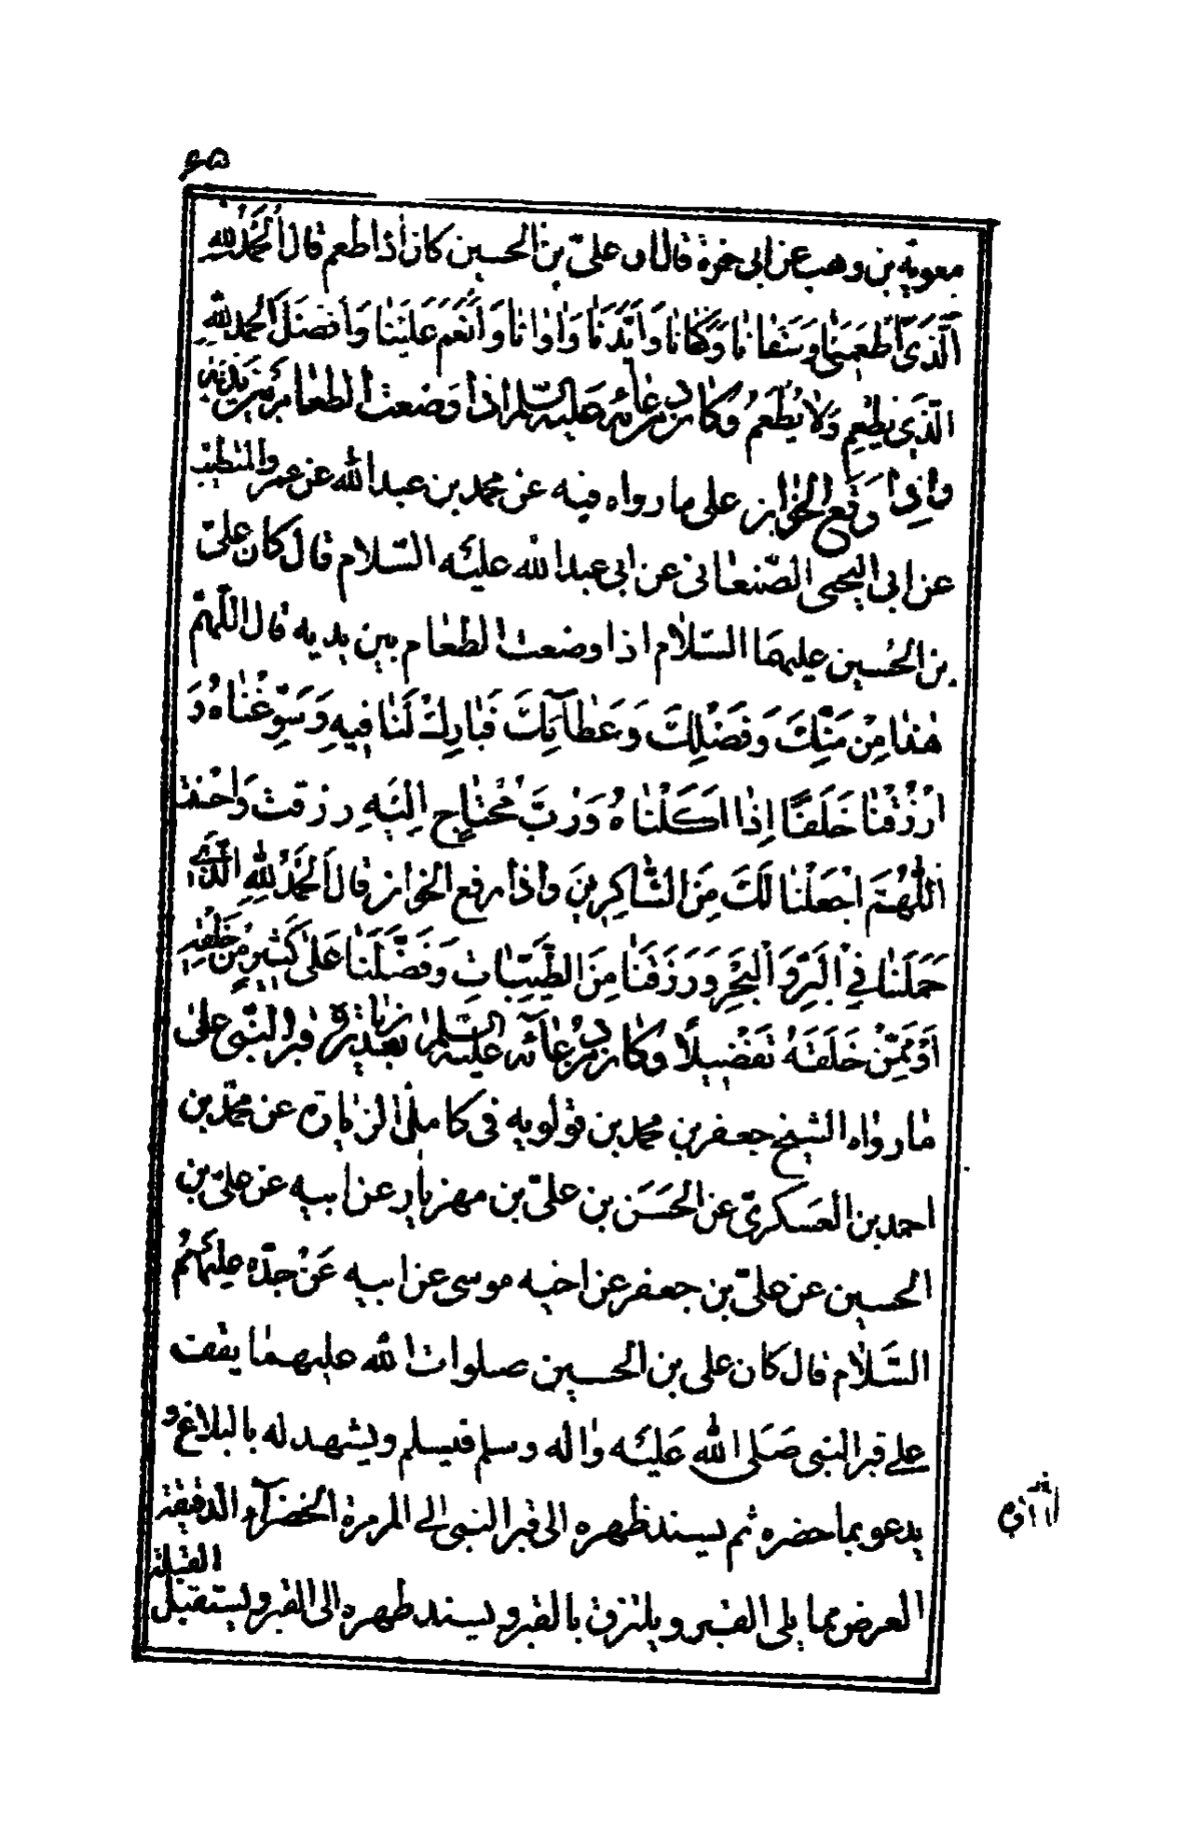 ٦٥
معوية بن وهب عن ابى حمزة قال ان علىّ بن الحسين كان اذا طعم قال اَلْحَمْدُ لِلّٰهِ
اَلَّذى اَطْعَمَنٰا وَسَقٰانٰا وَكَفٰانٰا وَاَيَّدَنٰا وَاٰوٰانٰا وَاَنْعَمَ عَلَيْنٰا وَاَفْضَلَ اَلْحَمْدُ لِلّٰهِ
الَّذى يُطْعِمُ وَلٰا يُطْعَمُ وَكٰان من دعٰائه عليه السّلم اذا وضعت الطعٰام بين يديه
واذا رفع الخوان على ما رواه فيه عن محمد بن عبد الله عن عمرو المتطبّب
عن ابى اليحيى الصّنعانى عن ابى عبد الله عليْه السّلام قال كان علىّ
بن الحُسين عليهما السّلام اذا وضعت الطعٰام بين يديه قال اللّهمّ
هٰذٰا مِنْ مَنِّكَ وَفَضْلِكَ وَعَطٰآئِكَ فَبٰارِكْ لَنٰا فيهِ وَسَوِّغْنٰاهُ وَ
ارْزُقْنٰا خَلَفًا اِذٰا اَكَلْنٰاهُ وَرُبَّ مُحْتٰاجٍ اِلَيْهِ رزقت وَاَحْسَنْتَ
اَللّٰهُمَّ اجْعَلْنٰا لَكَ مِنَ الشّٰاكِرينَ واذا رفع الخوان قال اَلْحَمْدُ لِلّٰهِ الَّذى
حَمَلَنٰا فِى الْبَرِّ وَالْبَحْرِ وَرَزَقَنٰا مِنَ الطَّيِّبٰاتِ وَفَضَّلَنٰا عَلٰى كَثيرٍ مِنْ خَلْقِهِ
اَوْ مِمَّنْ خَلَقَهُ تَفْضيلًا وكٰان من دعٰائه عليه السّلم بعد زيارة قبر النّبى على
مٰا رواه الشيخ جعفر بن محمد بن قولويه فى كامل الزيارة عن محمّد بن
احمد بن العسكرىّ عن الحَسَن بن علىّ بن مهزيار عن ابيه عن علىّ بن
الحسين عن علىّ بن جعفر عن اخيه موسى عن ابيه عَنْ جدّه عليهمُ
السَّلٰام قال كان على بن الحسين صلوات الله عليهمٰا يقف
على قبر النبى صَلى الله عَليْه واٰله وسلم فيسلم ويشهد له بالبلاغ و
يدعو بما حضره ثم يسند ظهره الى قبر النبى الى المرمرة الخضرآء الدقيقة
العرض مما يلى القبر ويلتزق بالقبر ويسند ظهره الى القبر ويستقبل
القبلة